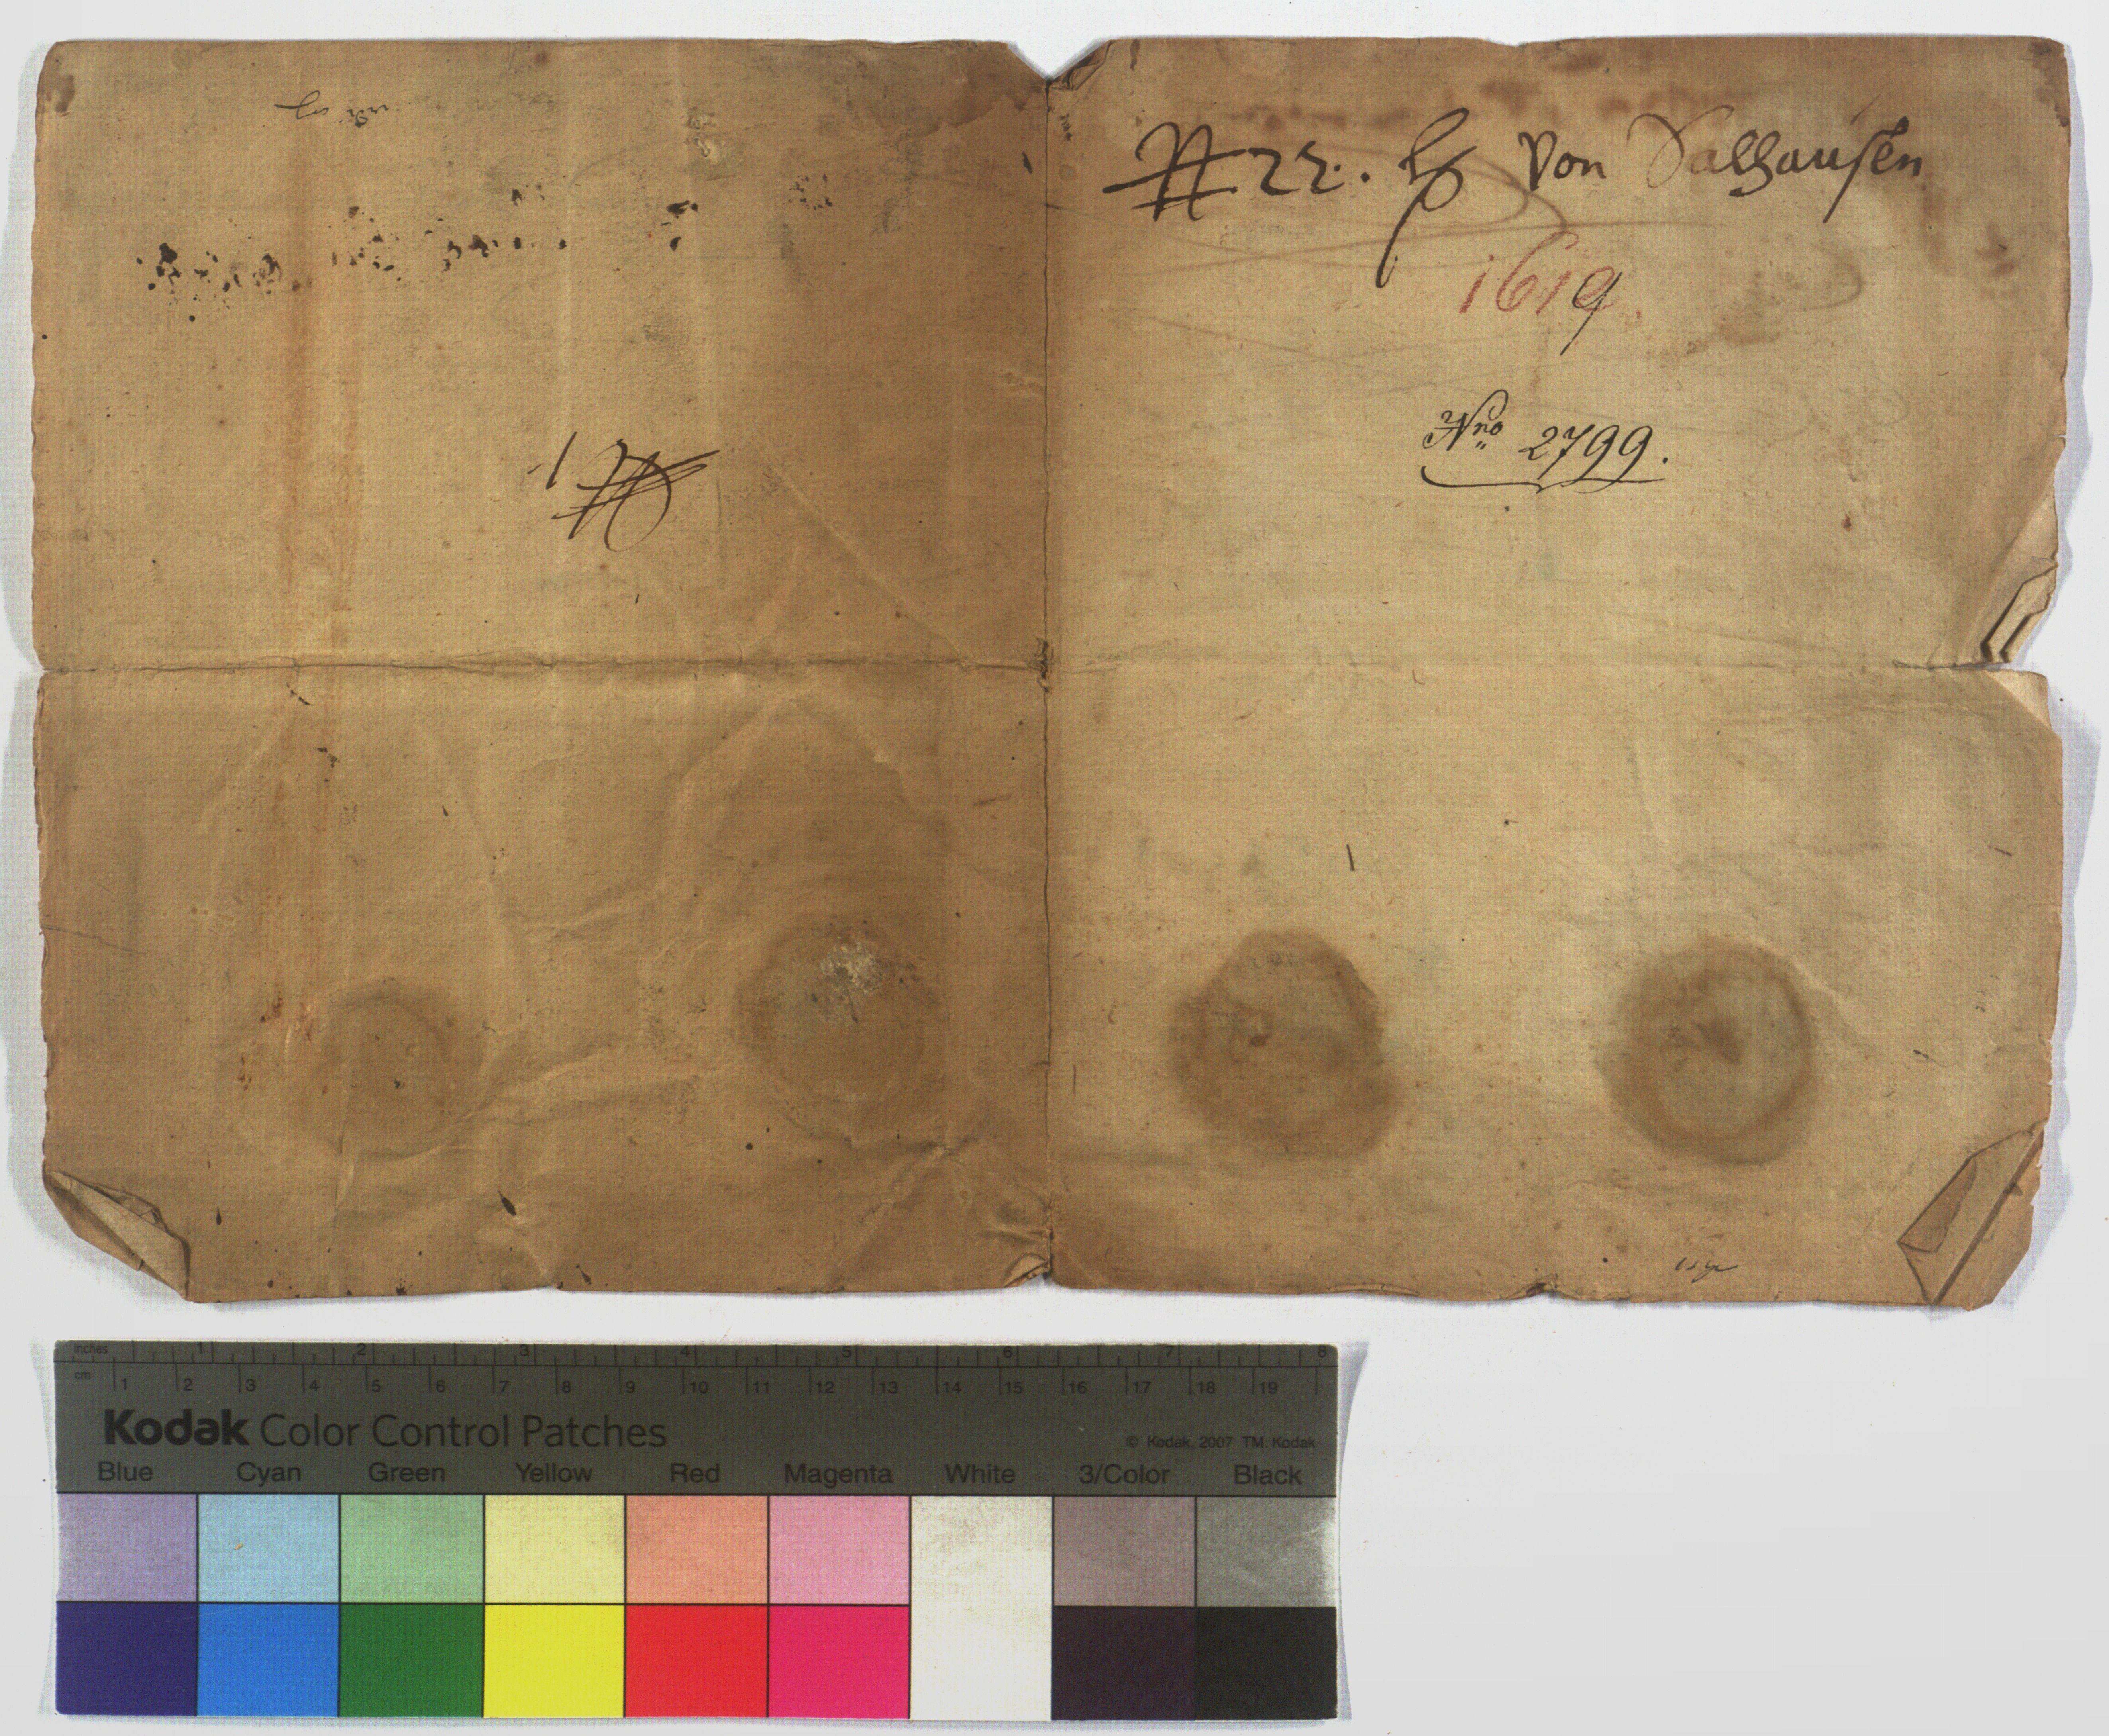 22. H von Salhausen
1619
Nro 2799.
inches 1 2 3 4 5 6 7 8
cm 1 2 3 4 5 6 7 8 9 10 11 12 13 14 15 16 17 18 19
Kodak Color Control Patches
© Kodak, 2007 TM: Kodak
Blue Cyan Green Yellow Red Magenta White 3/Color Black